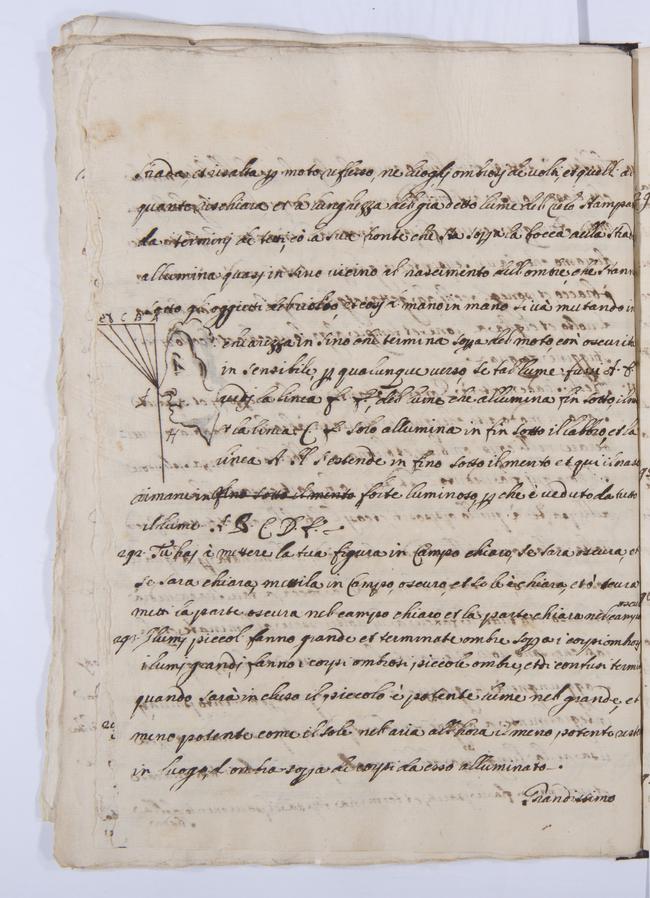 strada, et risalta per moto riflesso, ne luoghi ombrosi de volti, et quell
quanto rischiara et la longhezza del gia detto lume del Cielo stampa
da i termini de tetti, cò la sua fronte che sta sopra la bocca della strada
allumina quasi in sino vicino al nascimento dell'ombre, che stann
gli oggietti del et cosi a mano in mano si và mutando in
e d C B A
chiarezza in sino che termina sopra del moto con oscurità
in sensibile per qualunque verso, se tal lume fussi A. E
la linea f. f. del lume che allumina fin sotto il naso
et la linea C f. solo allumina in fin sotto il labbro, et la
linea A. H. s'estende in fino sotto il mento et qui il naso
rimane fino sotto il mento forte luminoso, per che è veduto da tutto
il lume A. B. C. D. E.
292. Tu hai à mettere la tua figura in Campo chiaro, se sara oscura, et
se sara chiara, mettila in Campo, oscuro, et se la è chiara, et oscura
metti la parte oscura nel campo chiaro et la parte chiara nel campo
oscu
293. I lumi piccoli fanno grande et terminate ombre sopra i corpi ombrosi
i lumi grandi fanno i corpi ombrosi piccole ombre, et di confusi termi
quando sarà incluso il piccolo è potente lume nel grande, et
meno potente come il sole nel aria all'hora il meno potente resta
in luogo d'ombra sopra de corpi da esso alluminato.
Grandissimo